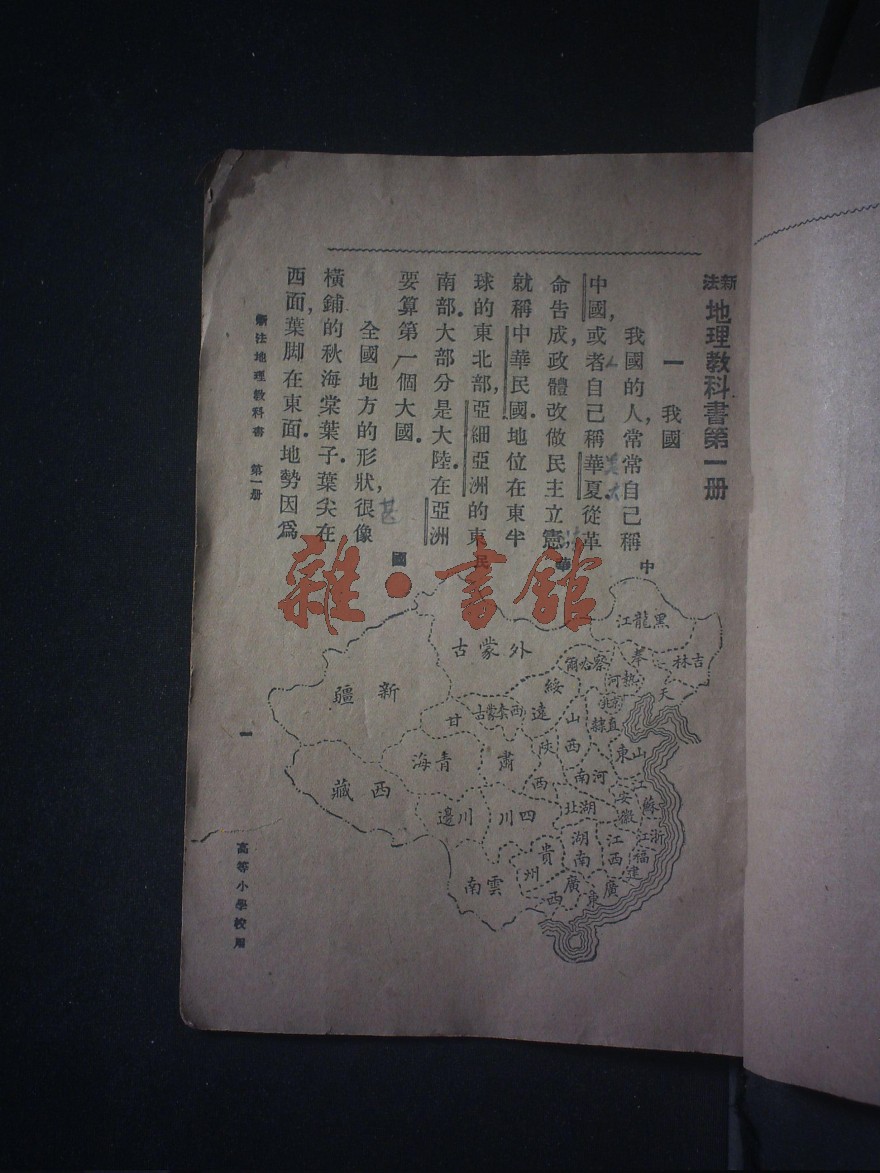 新法地理教科書第一册
一　我國
我國的人,常常自己稱
中國,或者自己稱華夏.從革
命告成,政體改做民主立憲,
就稱中華民國.地位在東半
球的東北部,亞細亞洲的東
南部.大部分是大陸.在亞洲
要算第一個大國.
全國地方的形狀,很像
橫鋪的秋海棠葉子.葉尖在
西面,葉脚在東面.地勢因爲
甚
新法地理教科書　第一册
一
高等小學校用
中華民國
黑龍江
吉林
奉天
外蒙古
新疆
察哈爾
熱河
綏遠
西套蒙古
甘肅
山西
直隸
陝西
山東
青海
西藏
河南
江蘇
安徽
湖北
四川
川邊
浙江
江西
湖南
福建
貴州
雲南
廣東
廣西
雜·書館